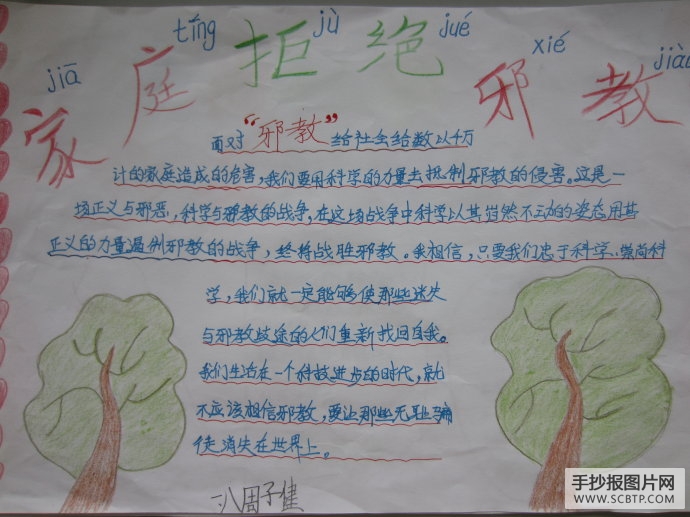 jiā tíng jù jué xié jiào
家庭拒绝邪教
面对“邪教”给社会给数以千万
计的家庭造成的危害,我们要用科学的力量去抵制邪教的侵害。这是一
场正义与邪恶,科学与邪教的战争,在这场战争中科学以其岿然不动的姿态用其
正义的力量遏制邪教的战争,终将战胜邪教。我相信,只要我们忠于科学、崇尚科
学,我们就一定能够使那些迷失
与邪教歧途的人们重新找回自我。
我们生活在一个科技进步的时代,就
不应该相信邪教,要让那些无耻骗
徒消失在世界上。
一八周子健
手抄报图片网
WWW.SCBTP.COM